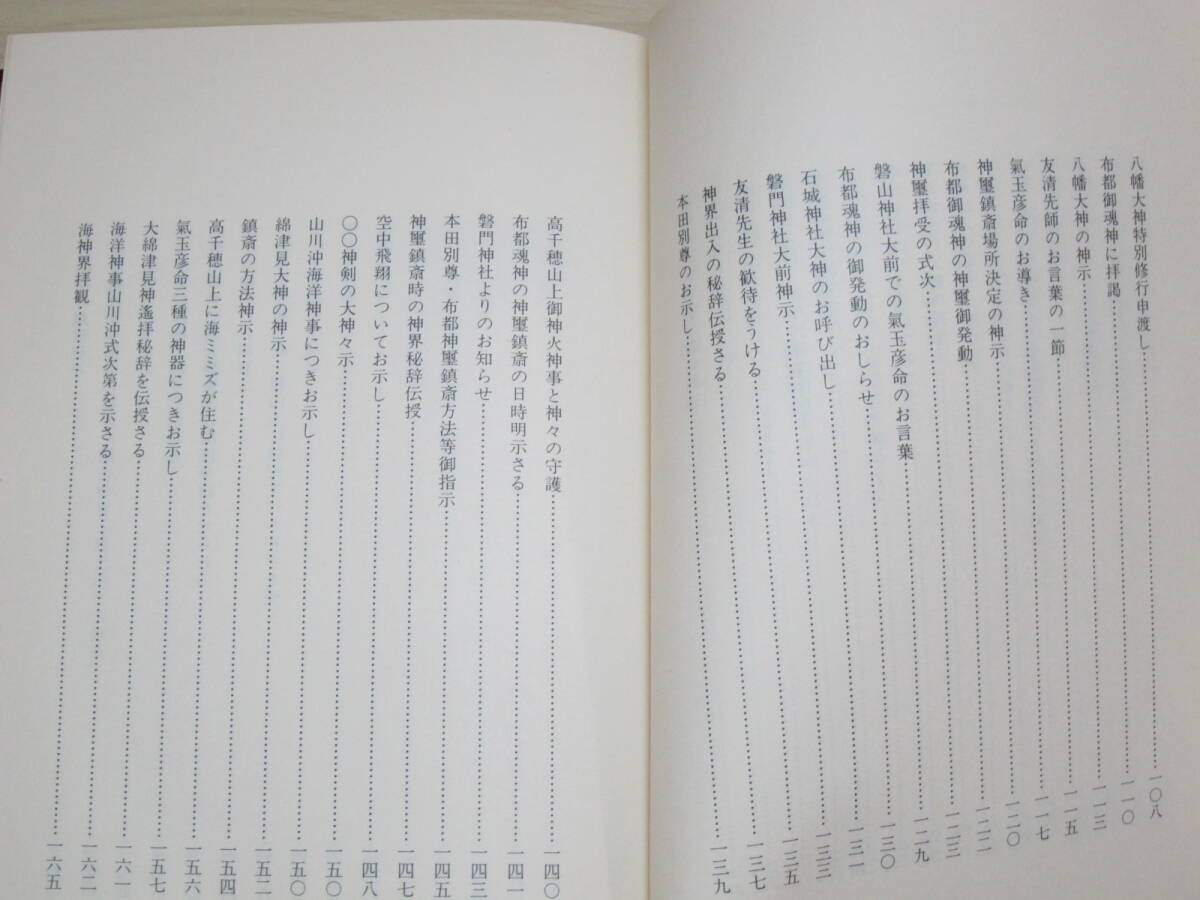 八幡大神特別修行申渡し……一〇八
布都御魂神に拝謁……一一〇
八幡大神の神示……一一三
友清先師のお言葉の一節……一一五
氣玉彦命のお導き……一一七
神璽鎮斎場所決定の神示……一二〇
布都御魂神の神璽御発動……一二二
神璽拝受の式次……一二三
磐山神社大前での氣玉彦命のお言葉……一二九
布都魂神の御発動のおしらせ……一三〇
石城神社大神のお呼び出し……一三一
磐門神社大前神示……一三三
友清先生の歓待をうける……一三五
神界出入の秘辞伝授さる……一三七
本田別尊のお示し……一三九
高千穂山上御神火神事と神々の守護……一四〇
布都魂神の神璽鎮斎の日時明示さる……一四一
磐門神社よりのお知らせ……一四三
本田別尊・布都神璽鎮斎方法等御指示……一四五
神璽鎮斎時の神界秘辞伝授……一四七
空中飛翔についてお示し……一四八
〇〇神剣の大神々示……一五〇
山川沖海洋神事につきお示し……一五〇
綿津見大神の神示……一五二
鎮斎の方法神示……一五四
高千穂山上に海ミミズが住む……一五六
氣玉彦命三種の神器につきお示し……一五七
大綿津見神遙拝秘辞を伝授さる……一六一
海洋神事山川沖式次第を示さる……一六二
海神界拝観……一六五